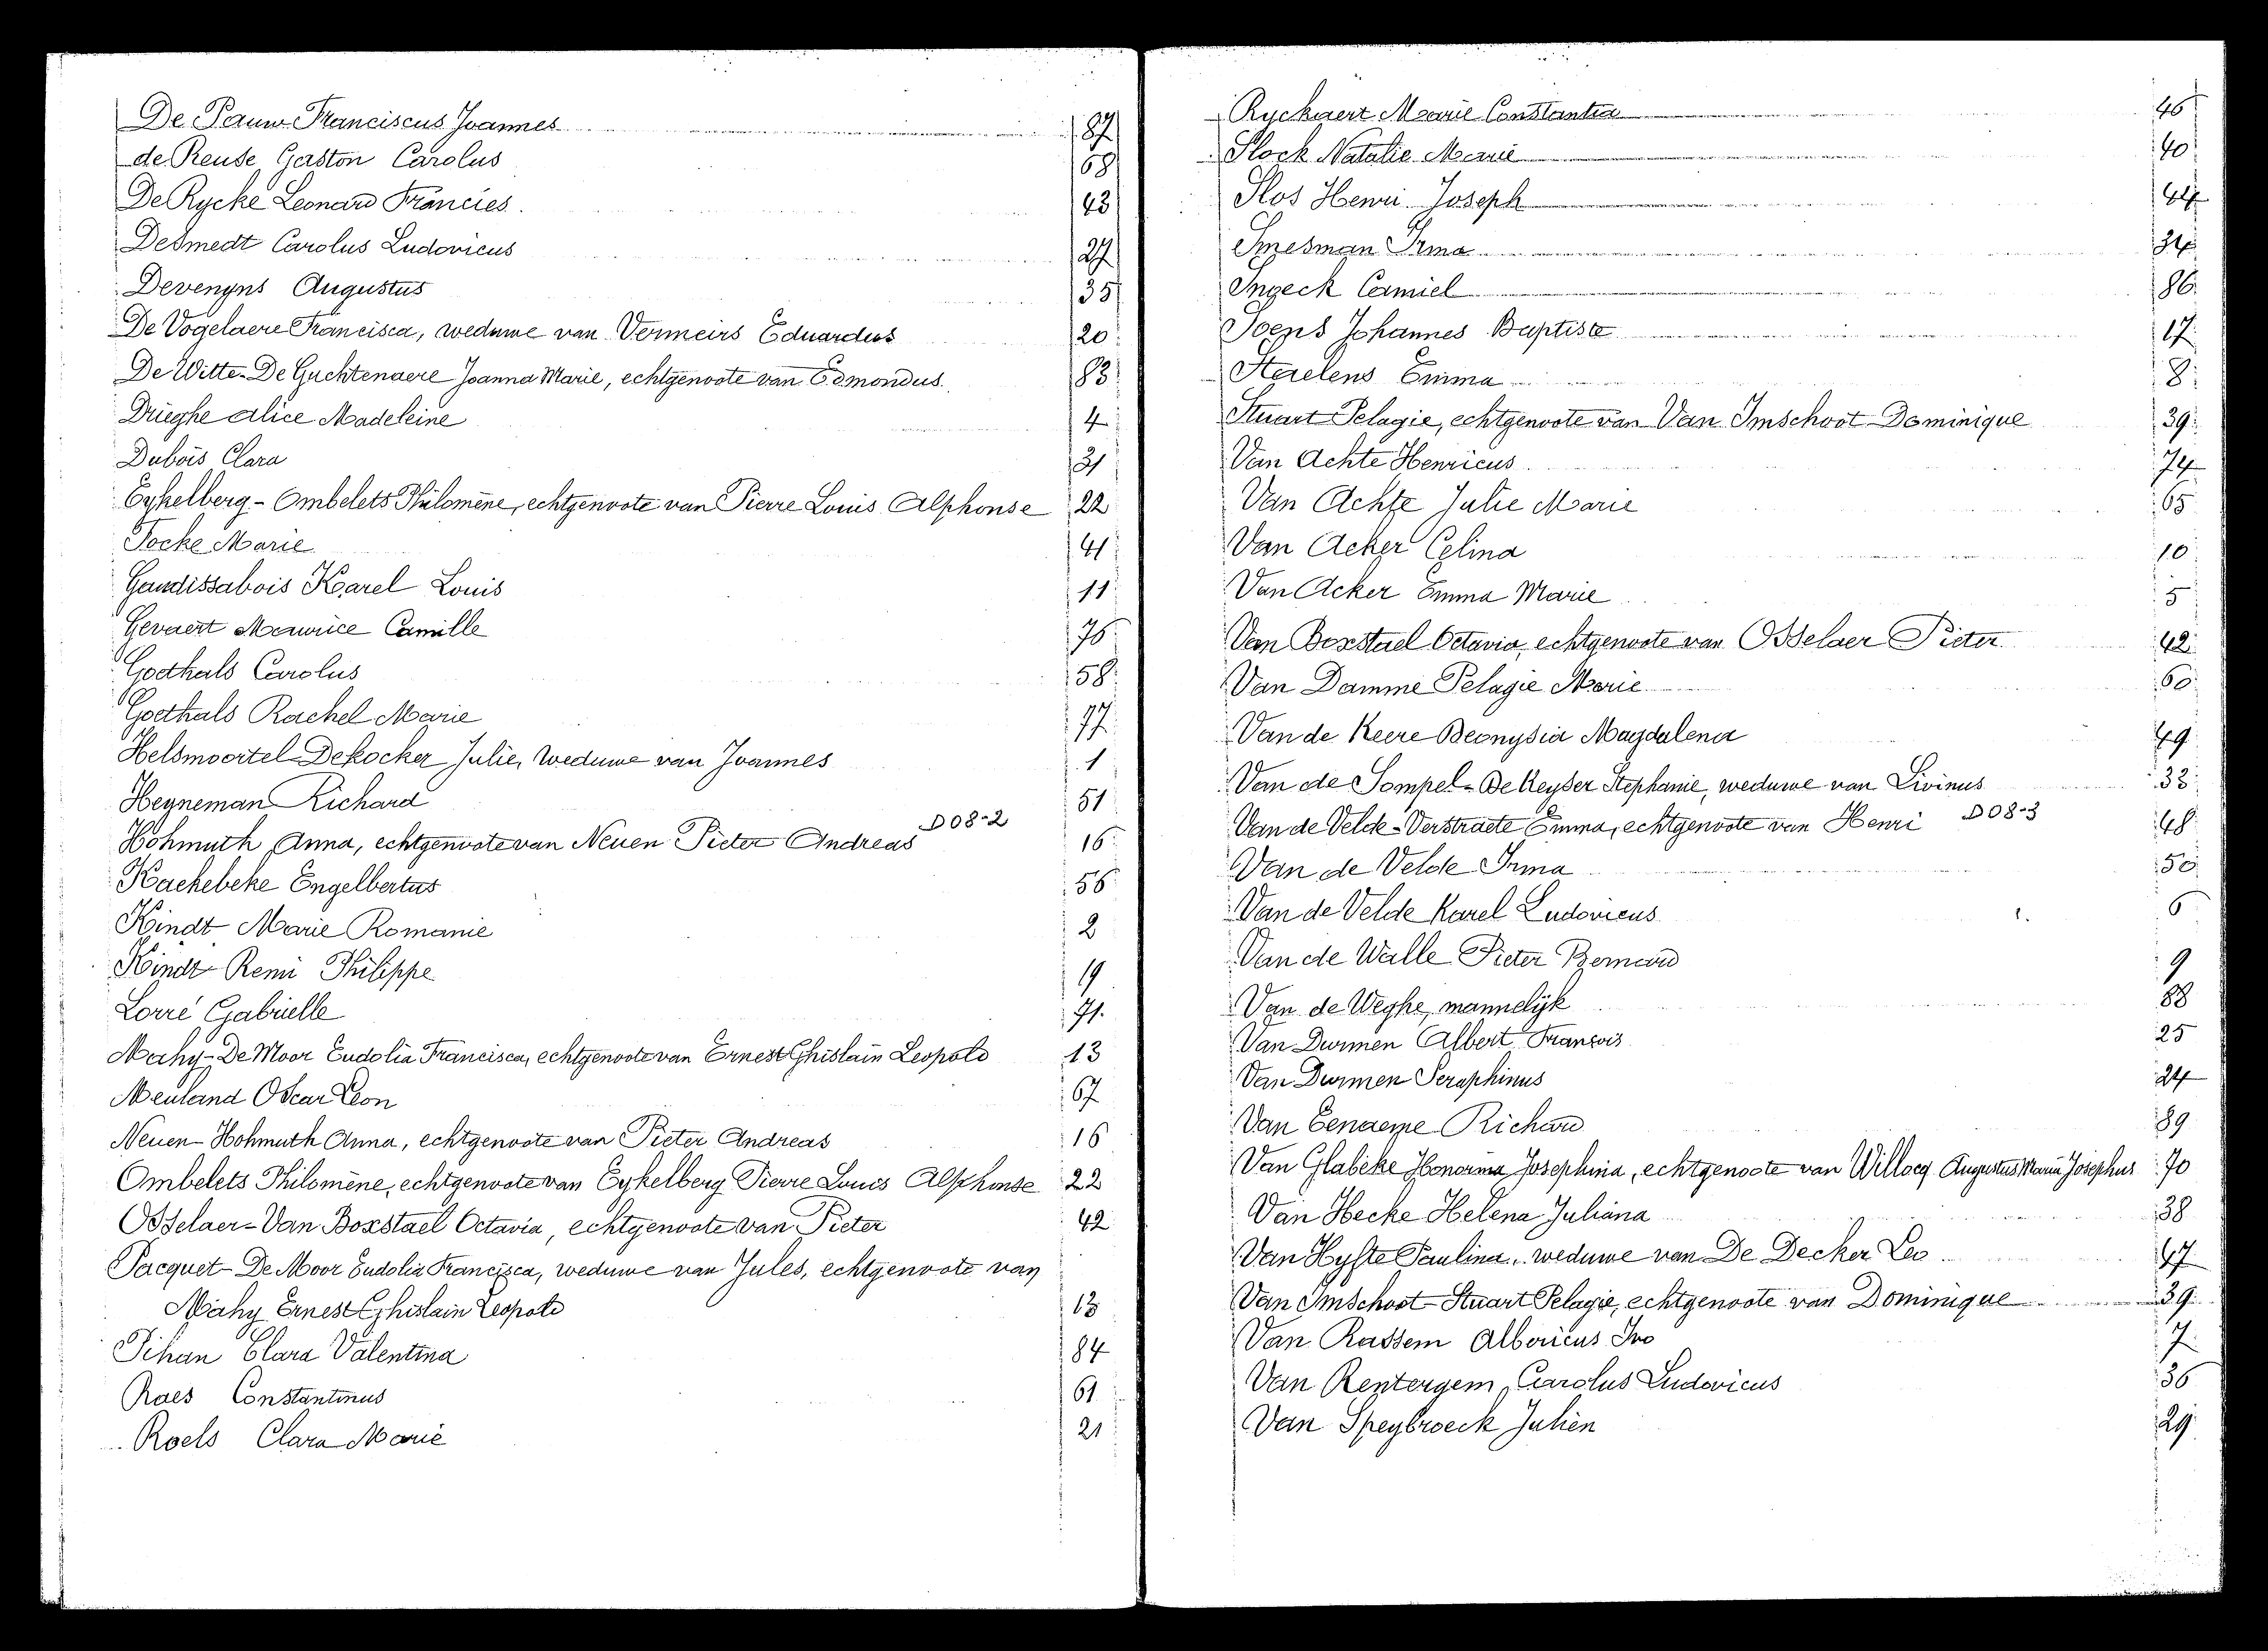 De Pauw Franciscus Joannes 87
de Reuse Gaston Carolus 68
De Rycke Leonard Francies 43
Desmedt Carolus Ludovicus 27
Devenyns Augustus 35
De Vogelaere Francisca, weduwe van Vermeirs Eduardus 20
De Witte-De Guchtenaere Joanna Marie, echtgenoote van Edmondus 83
Drieghe Alice Madeleine 4
Dubois Clara 31
Eykelberg-Ombelets Philomène, echtgenoote van Pierre Louis Alphonse 22
Focke Marie 41
Gaudissabois Karel Louis 11
Gevaert Maurice Camille 76
Goethals Carolus 58
Goethals Rachel Marie 77
Helsmoortel-Dekocker Julie, Weduwe van Joannes 1
Heyneman Richard 51
Hohmuth Anna, echtgenoote van Neuen Pieter Andreas D08-2 16
Kachebeke Engelbertus 56
Kindt Marie Romanie 2
Kindt Remi Philippe 19
Lorré Gabrielle 71.
Mahy-De Moor Eudolia Francisca, echtgenoote van Ernest Ghislain Leopold 13
Meuland Oscar Leon 67
Neuen-Hohmuth Anna, echtgenoote van Pieter Andreas 16
Ombelets Philomène, echtgenoote van Eykelberg Pierre Louis Alphonse 22
Osselaer-Van Boxstael Octavia, echtgenoote van Pieter 42
Pacquet-De Moor Eudolia Francisca, weduwe van Jules, echtgenoote van
Mahy Ernest Ghislain Leopold 13
Pihan Clara Valentina 84
Raes Constantinus 61
Roels Clara Marie 21
Ryckaert Marie Constantia 46
Slock Natalie Marie 40
Slos Henri Joseph 44
Smesman Irma 34
Snoeck Camiel 86
Soens Johannes Baptiste 17
Staelens Emma 8
Stuart Pelagie, echtgenoote van Van Imschoot Dominique 39
Van Achte Henricus 74
Van Achte Julie Marie 65
Van Acker Celina 10
Van Acker Emma Marie 5
Van Boxstael Octavia, echtgenoote van Osselaer Pieter 42
Van Damme Pelagie Marie 60
Van de Keere Beonysia Magdalena 49
Van de Sompel-De Keyser Stephanie, weduwe van Livinus 33
Van de Velde-Verstraete Emma, echtgenoote van Henri D08-3 48
Van de Velde Irma 50
Van de Velde Karel Ludovicus 6
Van de Walle Pieter Bernard 9
Van de Weghe, mannelijk 88
Van Durmen Albert François 25
Van Durmen Seraphinus 24
Van Eenaeme Richard 89
Van Glabeke Honorina Josephina, echtgenoote van Willocq Augustus Maria Josephus 70
Van Hecke Helena Juliana 38
Van Hyfte Paulina, weduwe van De Decker Leo 47
Van Imschoot-Stuart Pelagie, echtgenoote van Dominique 39
Van Rassem Albericus Ivo 7
Van Rentergem Carolus Ludovicus 36
Van Speybroeck Julien 29